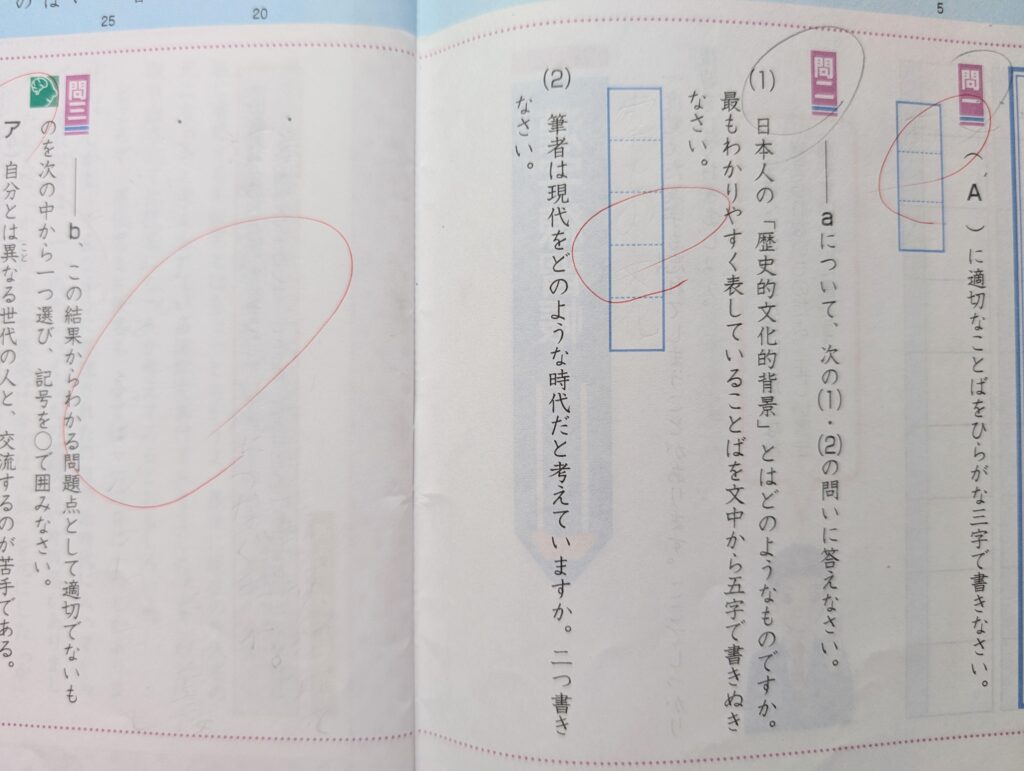 5
20
25
問一
（ A ）に適切なことばをひらがな三字で書きなさい。
問二
――a について、次の(1)・(2)の問いに答えなさい。
(1) 日本人の「歴史的文化的背景」とはどのようなものですか。
最もわかりやすく表していることばを文中から五字で書きぬき
なさい。
(2) 筆者は現代をどのような時代だと考えていますか。二つ書き
なさい。
問三
――b、この結果からわかる問題点として適切でないも
のを次の中から一つ選び、記号を○で囲みなさい。
ア 自分とは異なる世代の人と、交流するのが苦手である。
こと